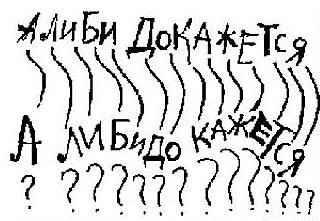 АЛиБи ДоКАЖЕТся
А ЛИБиДо КАЖЕТСЯ
? ?????? ???????